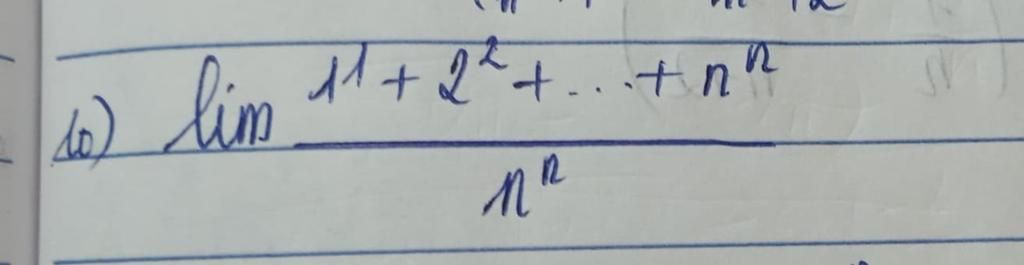 10) lim (1¹ + 2² + ... + nⁿ) / nⁿ